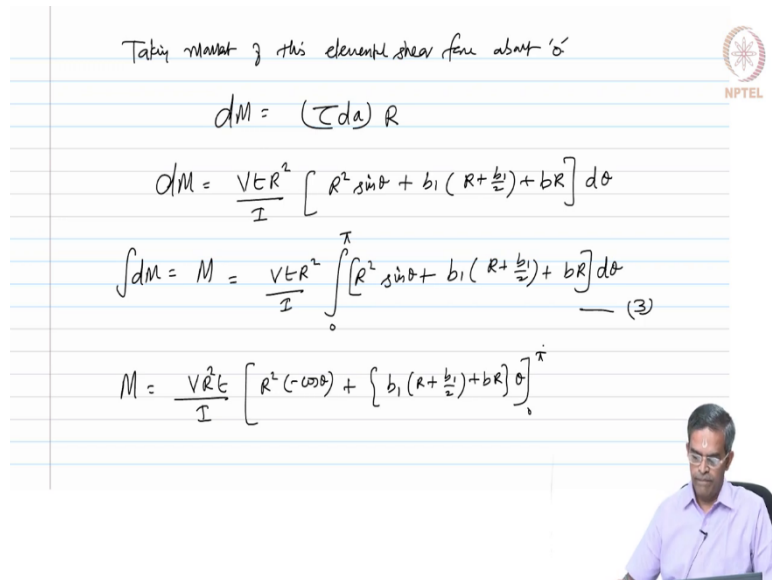 Taking moment of this elemental shear force about 'o'
NPTEL
dM = (τda) R
dM = VtR²/I [ R² sinθ + b₁ ( R + b₁/2 ) + bR ] dθ
∫dM = M = VtR²/I ∫₀^π [ R² sinθ + b₁ ( R + b₁/2 ) + bR ] dθ
— (3)
M = VR²t/I [ R² (-cosθ) + { b₁ ( R + b₁/2 ) + bR } θ ]₀^π